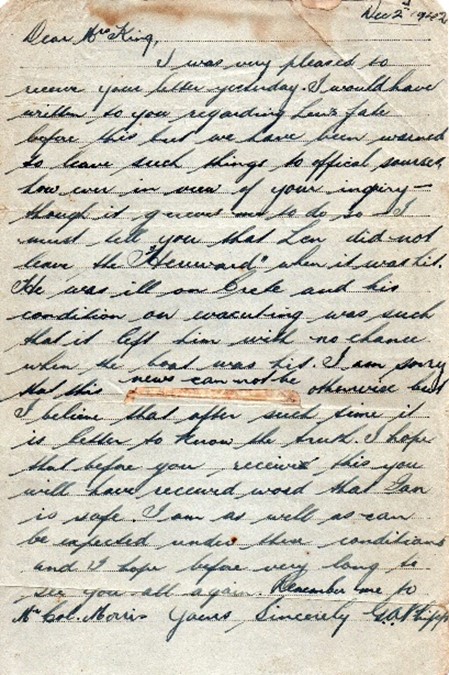 Dec 2nd 1942
Dear Mrs King,
I was very pleased to
receive your letter yesterday. I would have
written to you regarding Len's fate
before this but we have been warned
to leave such things to offical sourses,
how ever in view of your inquiry —
though it greives me to do so I
must tell you that Len did not
leave the "Hereward" when it was hit.
He was ill on Crete and his
condition on evacuting was such
that it left him with no chance
when the boat was hit. I am sorry
that this news can not be otherwise but
I believe that after such time it
is better to know the truth. I hope
that before you receive this you
will have received word that Ian
is safe. I am as well as can
be expected under these conditions
and I hope before very long to
see you all again. Remember me to
Mr Morris Yours Sincerely